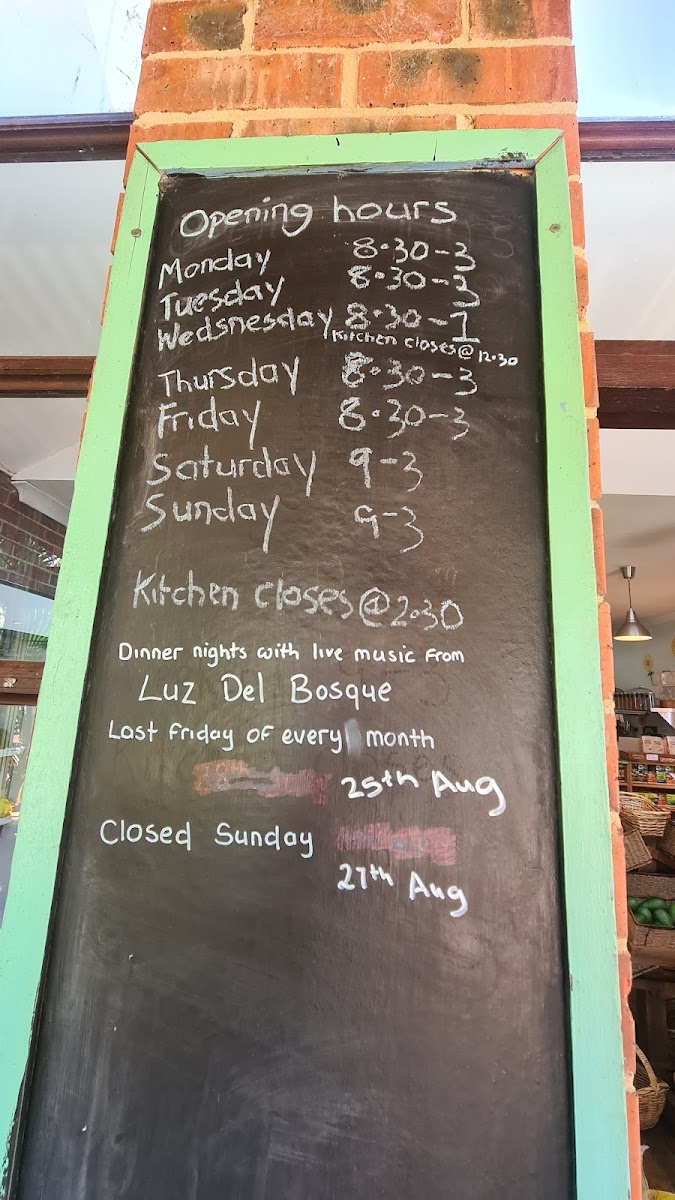 Opening hours
Monday 8.30-3
Tuesday 8.30-3
Wedsnesday 8.30-1
Kitchen closes@ 12.30
Thursday 8.30-3
Friday 8.30-3
Saturday 9-3
Sunday 9-3
Kitchen closes@2.30
Dinner nights with live music from
Luz Del Bosque
Last Friday of every month
25th Aug
Closed Sunday
27th Aug